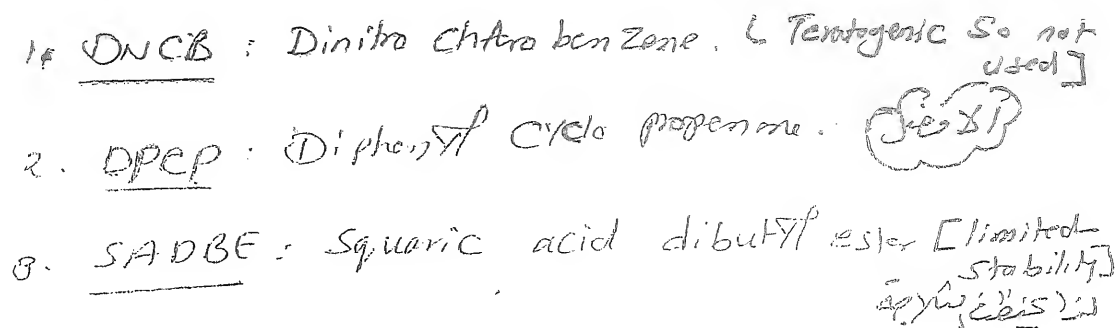 1. DNCB : Dinitro Chloro benzene. [Teratogenic So not
used]
2. DPCP : Diphenyl Cyclo propenone.
3. SADBE : Squaric acid dibutyl ester [limited
stability]